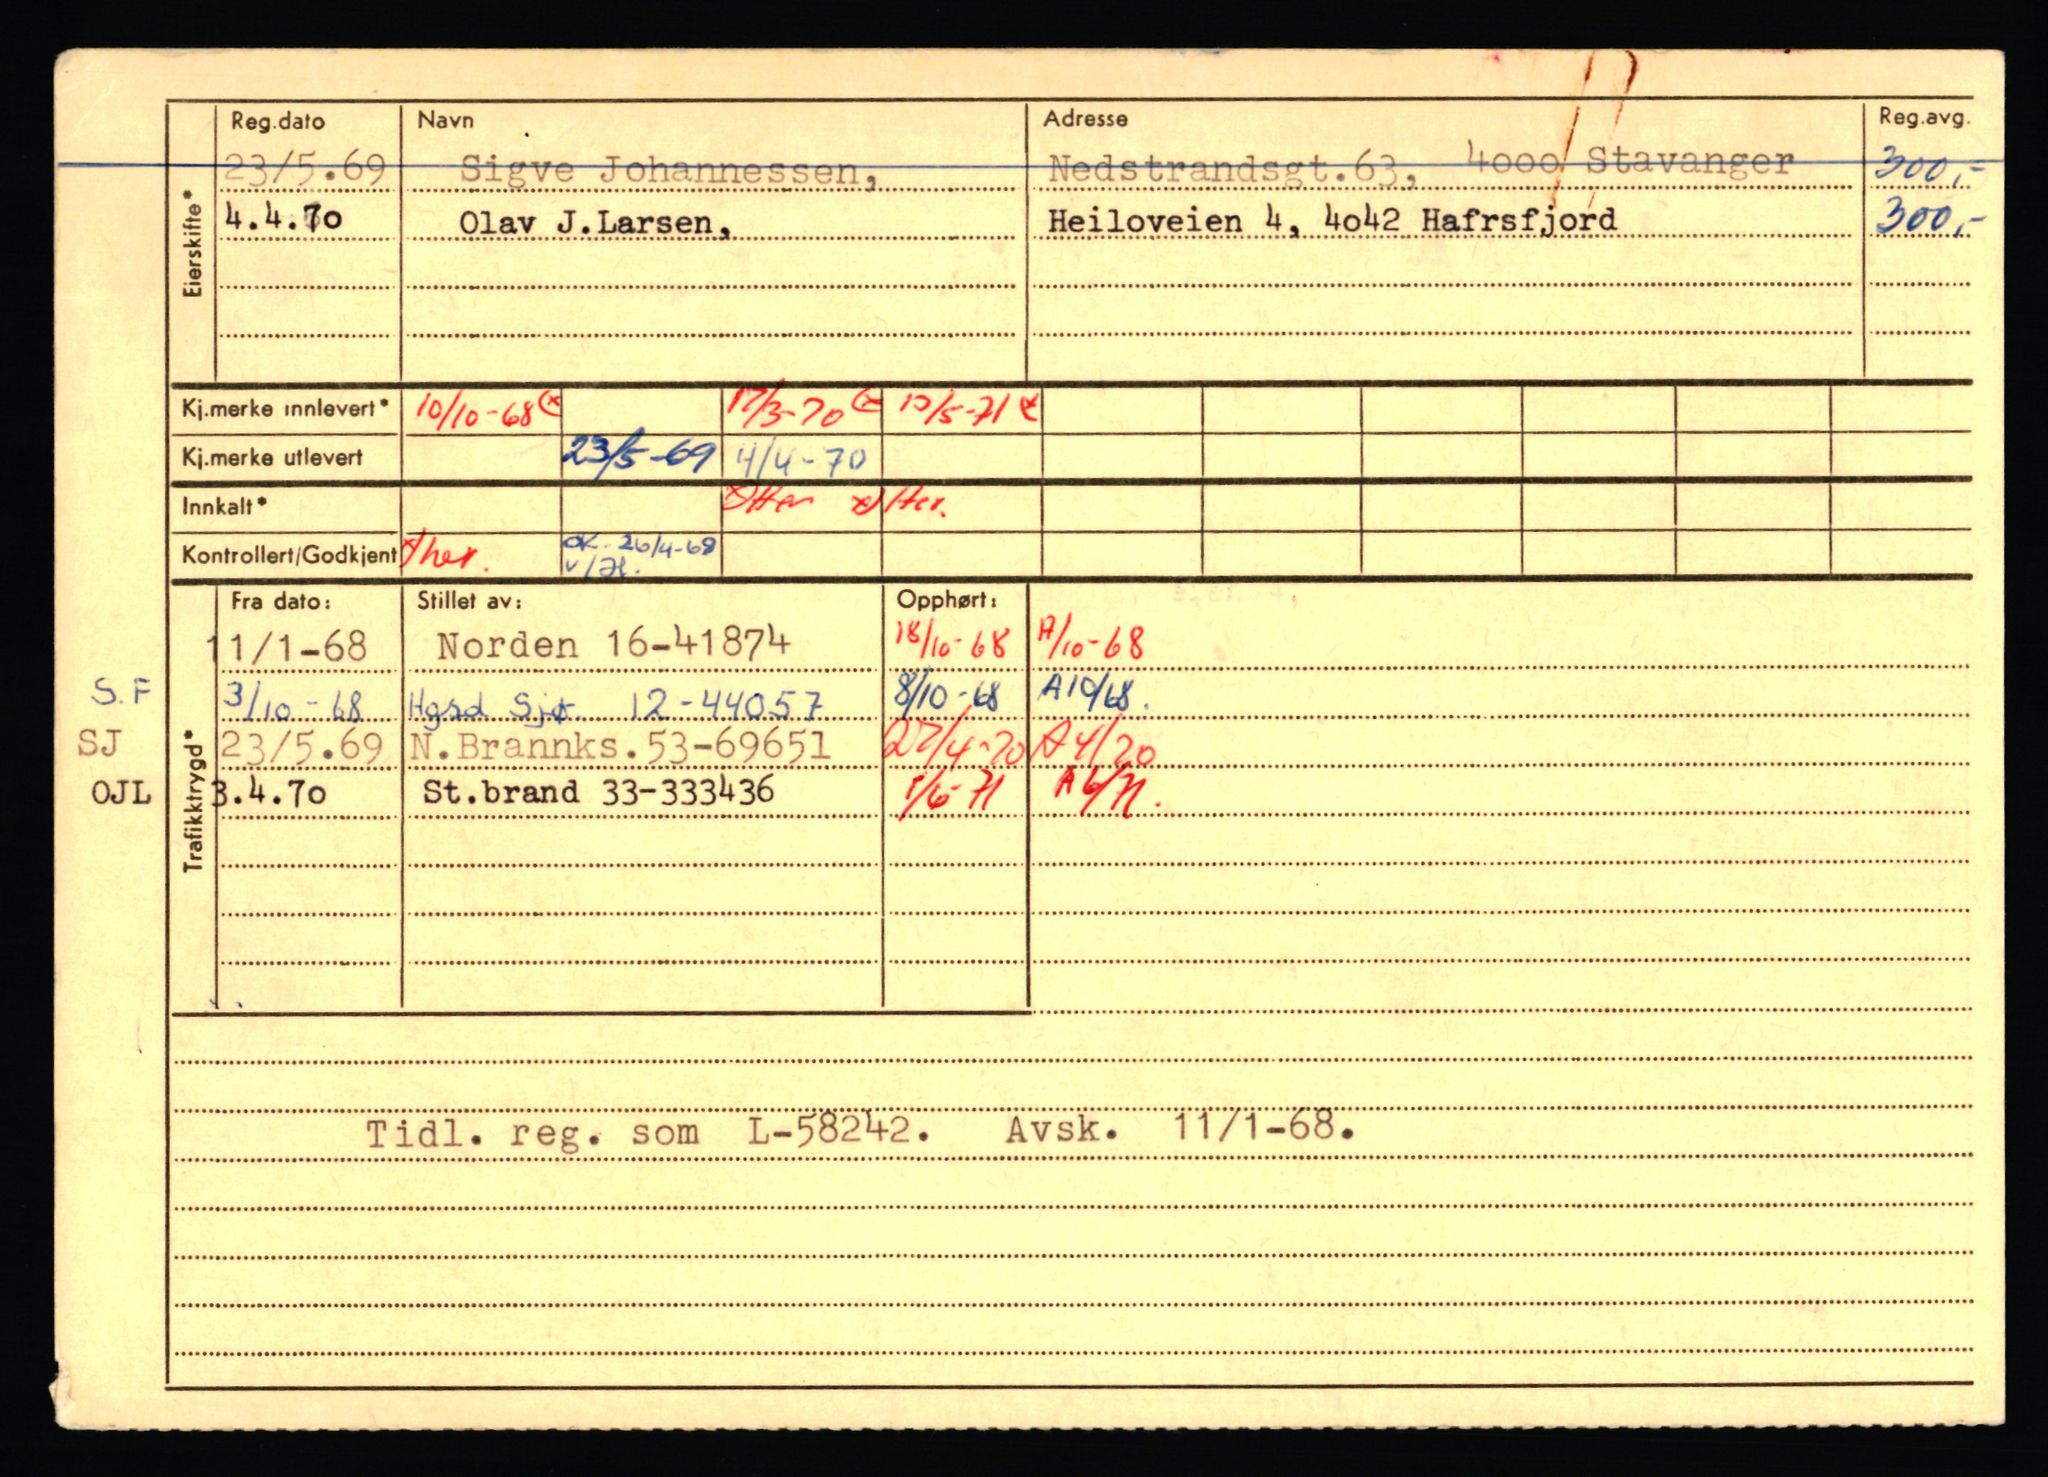 Reg.dato Navn Adresse Reg.avg.
23/5.69 Sigve Johannessen, Nedstrandsgt.63, 4000 Stavanger 300,-
4.4.70 Olav J.Larsen, Heiloveien 4, 4042 Hafrsfjord 300,-
Eierskifte*
Kj.merke innlevert* 10/10-68 17/3-70
Kj.merke utlevert 23/5-69 4/4-70
Innkalt*
Kontrollert/Godkjent her. OK. 26/4-68
Fra dato: Stillet av: Opphørt:
11/1-68 Norden 16-41874 18/10-68 A/10-68
S.F 3/10-68 Hgsd Sjø 12-44057 8/10-68 A10/68.
SJ 23/5.69 N.Brannks.53-69651 27/4-70 A4/70
OJL 3.4.70 St.brand 33-333436 1/6-71 A6/71.
Trafikktrygd*
Tidl. reg. som L-58242. Avsk. 11/1-68.